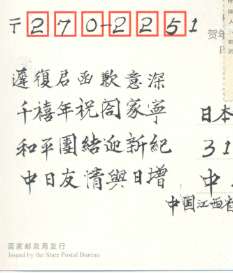 〒270-2251
賀年
遲復君函歉意深
千禧年祝閤家寧
和平團結迎新紀
中日友情與日增
日本
31
中
中国江西省
国家邮政局发行
Issued by the State Postal Bureau